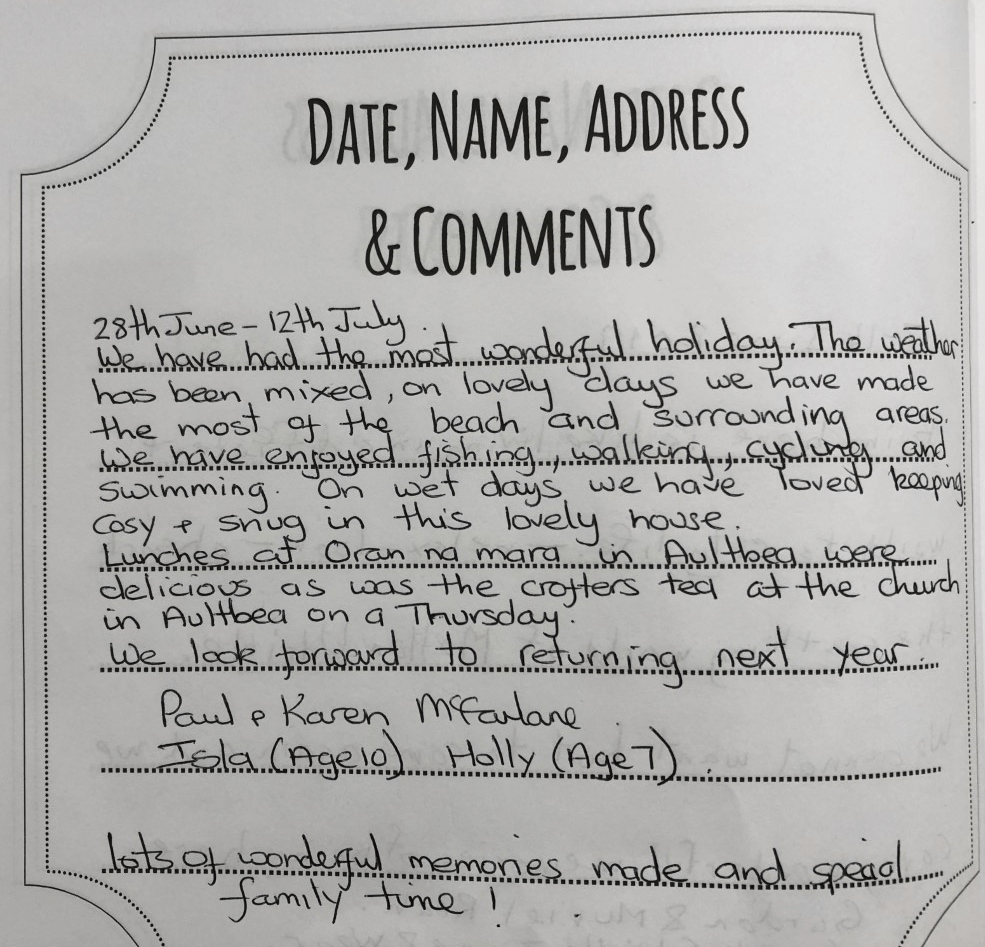 DATE, NAME, ADDRESS
& COMMENTS
28th June - 12th July.
We have had the most wonderful holiday. The weather
has been mixed, on lovely days we have made
the most of the beach and surrounding areas.
We have enjoyed fishing, walking, cycling and
swimming. On wet days we have loved keeping
cosy + snug in this lovely house.
Lunches at Oran na mara in Aultbea were
delicious as was the crofters tea at the church
in Aultbea on a Thursday.
We look forward to returning next year.
Paul & Karen McFarlane
Isla (Age 10) Holly (Age 7).
lots of wonderful memories made and special
family time!